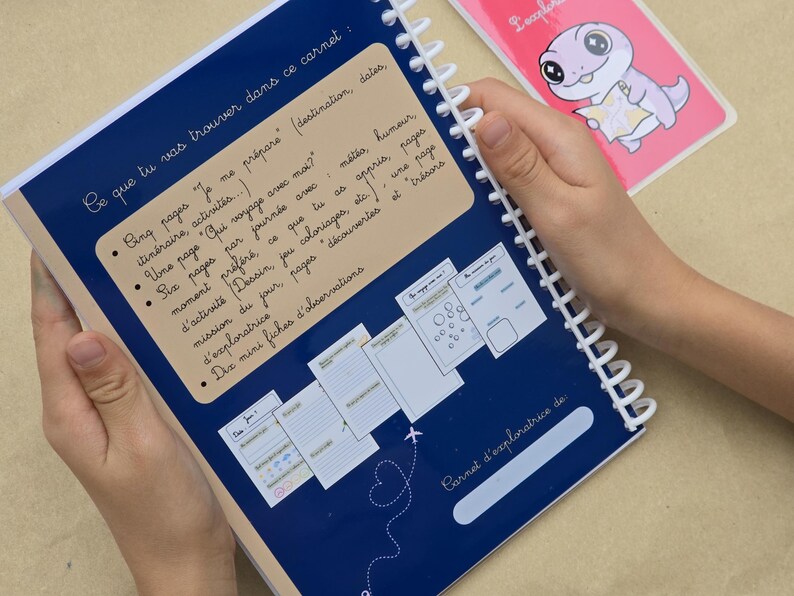 Ce que tu vas trouver dans ce carnet :
• Cinq pages "Je me prépare" (destination, dates,
itinéraire, activités...)
• Une page "Qui voyage avec moi?"
• Six pages par journée avec : météo, humeur,
moment préféré, ce que tu as appris, pages
d'activité (Dessin, jeu coloriages, etc.), une page
mission du jour, pages "découvertes" et "trésors
d'exploratrice"
• Dix mini fiches d'observations
Carnet d'exploratrice de:
L'explora